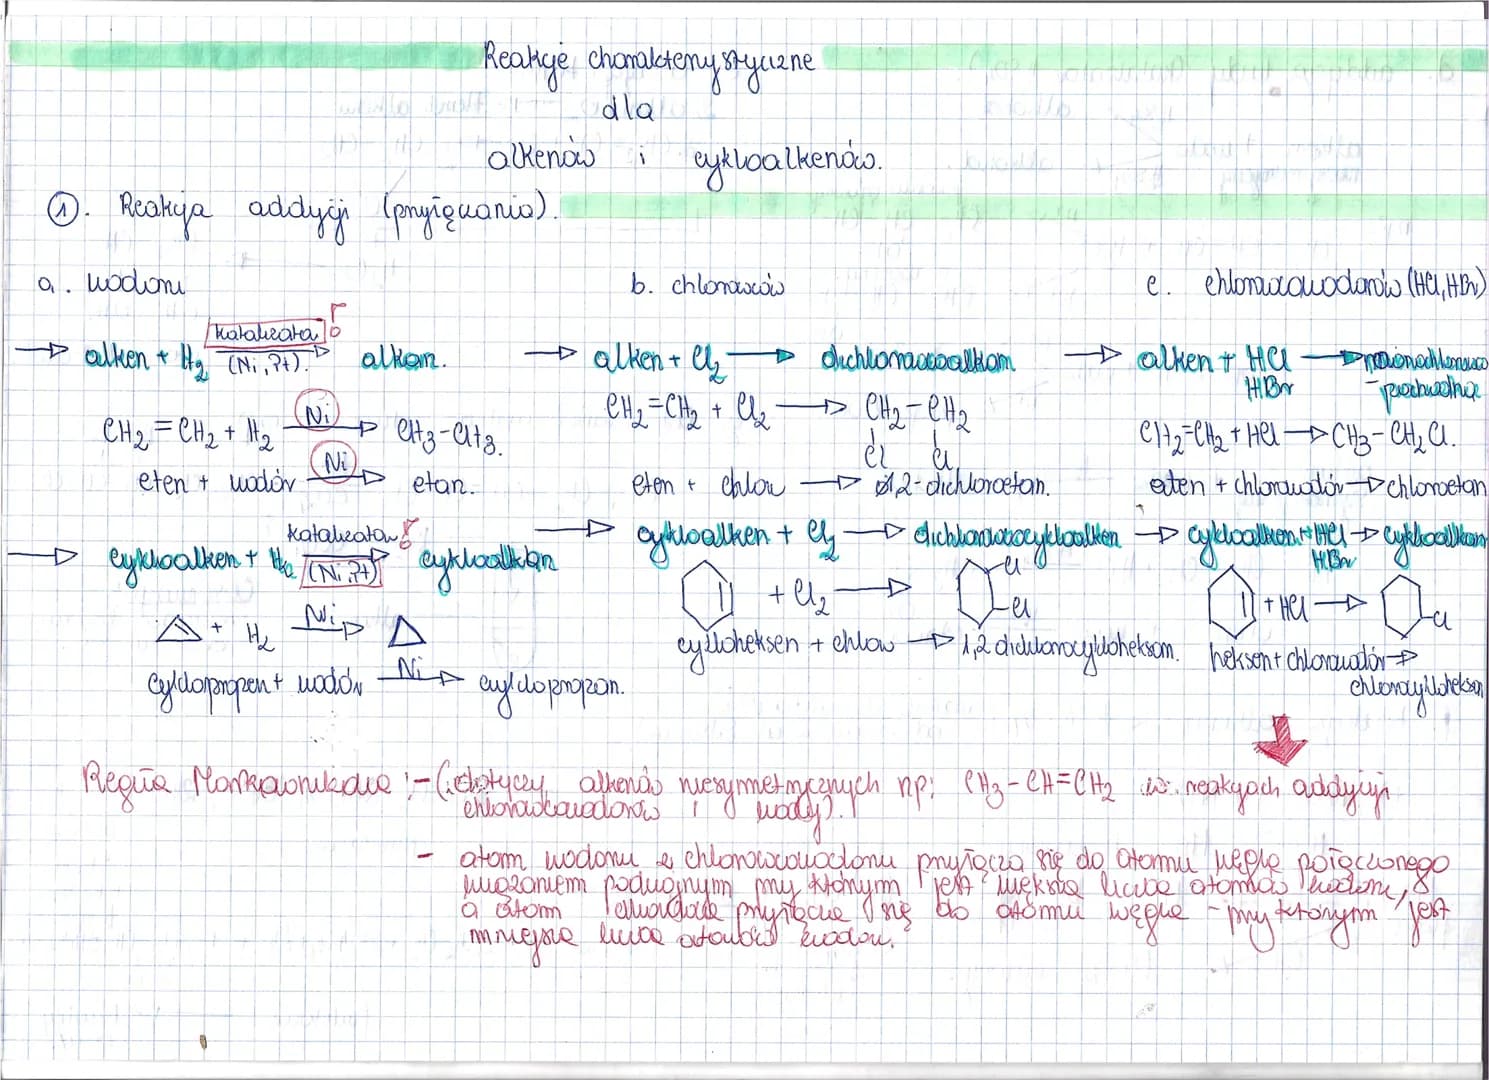 Reakcje charakterystyczne
dla
alkenów i cykloalkenów.
①. Reakcja addycji (przyłączania).
a. wodoru
katalizator
→ alken + H₂ (Ni, Pt). → alkan.
CH₂=CH₂ + H₂ Ni → CH₃-CH₃.
eten + wodór Ni → etan.
katalizator
→ cykloalken + H₂ (Ni, Pt) → cykloalkan
+ H₂ Ni →
cyklopropen + wodór Ni → cyklopropan.
b. chlorowców
→ alken + Cl₂ → dichlorowcoalkan
CH₂=CH₂ + Cl₂ → CH₂-CH₂
Cl Cl
eten + chlor → 1,2-dichloroetan.
→ cykloalken + Cl₂ → dichlorowcocykloalken
+ Cl₂ → Cl
Cl
cykloheksen + chlor → 1,2 dichlorocykloheksan.
c. chlorowcowodorów (HCl, HBr)
→ alken + HCl → monochlorowco
HBr -pochodna
CH₂=CH₂ + HCl → CH₃-CH₂Cl.
eten + chlorowodór → chloroetan
→ cykloalken + HCl → cykloalkan
HBr
+ HCl → Cl
heksen + chlorowodór →
chlorocykloheksan
Reguła Markownikowa :- (dotyczy alkenów niesymetrycznych np: CH₃-CH=CH₂ w reakcjach addycji
chlorowcowodorów i wody).
- atom wodoru z chlorowcowodoru przyłącza się do atomu węgla połączonego
wiązaniem podwójnym przy którym jest większa liczba atomów wodoru,
a atom przyłącza się do atomu węgla - przy którym jest
mniejsza liczba atomów wodoru.